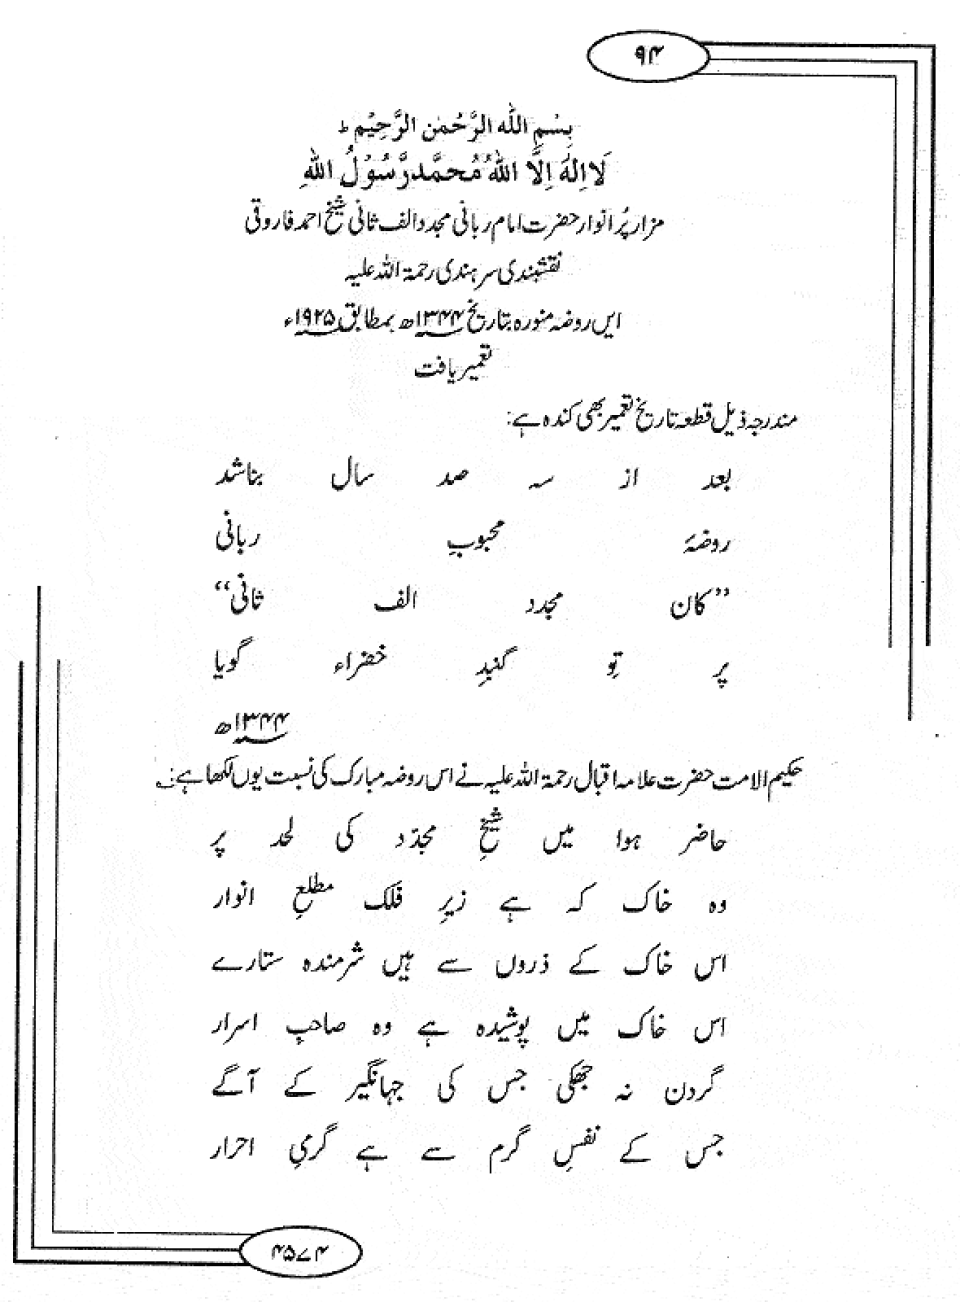 ۹۴
بِسْمِ اللّٰہِ الرَّحْمٰنِ الرَّحِیْمِ ط
لَا اِلٰہَ اِلَّا اللّٰہُ مُحَمَّد رَّسُوْلُ اللّٰہِ
مزار پُر انوار حضرت امام ربانی مجدد الف ثانی شیخ احمد فاروقی
نقشبندی سرہندی رحمۃ اللہ علیہ
ایں روضہ منورہ بتاریخ ۱۳۴۴ھ بمطابق ۱۹۲۵ء
تعمیر یافت
مندرجہ ذیل قطعہ تاریخ تعمیر بھی کندہ ہے:
بعد از سہ صد سال بناشد
روضۂ محبوبِ ربانی
”کان مجدد الف ثانی“
پر تِو گنبدِ خضراء گویا
۱۳۴۴ھ
حکیم الامت حضرت علامہ اقبال رحمۃ اللہ علیہ نے اس روضہ مبارک کی نسبت یوں لکھا ہے:
حاضر ہوا میں شیخِ مجدّد کی لحد پر
وہ خاک کہ ہے زیرِ فلک مطلعِ انوار
اس خاک کے ذروں سے ہیں شرمندہ ستارے
اس خاک میں پوشیدہ ہے وہ صاحبِ اسرار
گردن نہ جھکی جس کی جہانگیر کے آگے
جس کے نفسِ گرم سے ہے گرمیِ احرار
۴۵۷۴